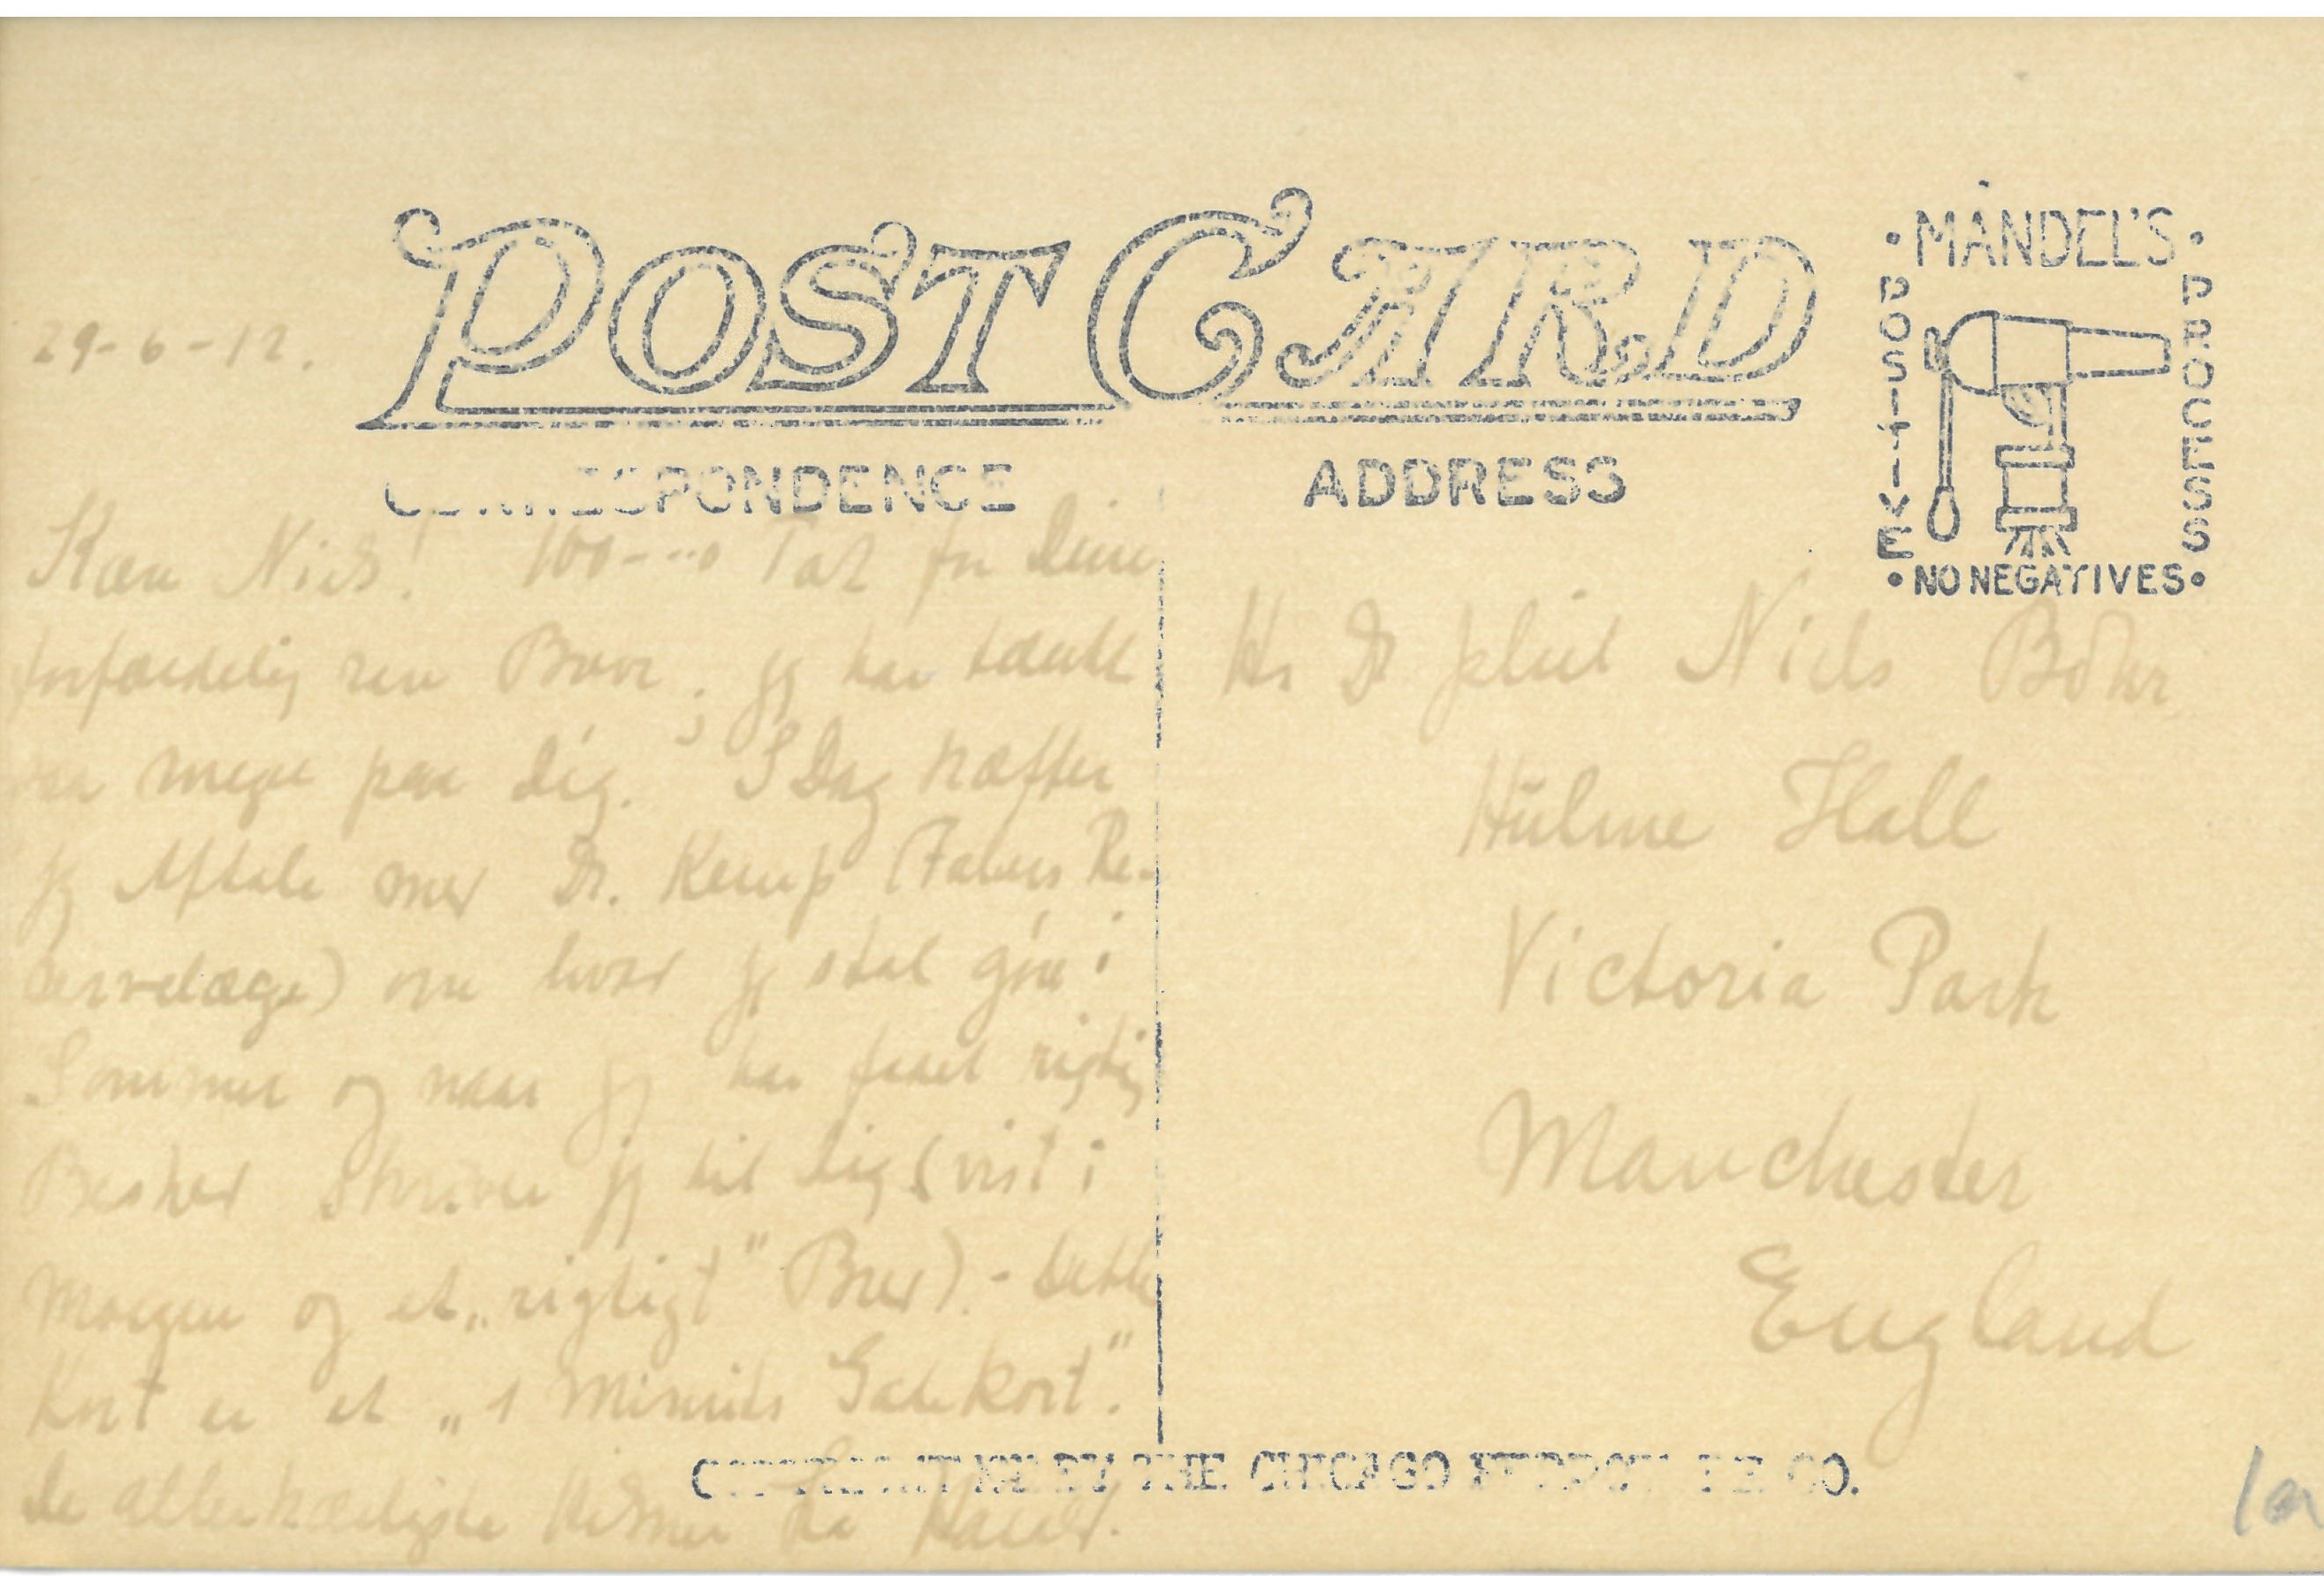 POST CARD
29-6-12.
CORRESPONDENCE
ADDRESS
• MANDEL'S •
POSITIVE
PROCESS
• NO NEGATIVES •
Kære Niels! 100---0 Tak for Dine
forfærdelig rare Breve; jeg har tænkt
saa meget paa Dig. I Dag træffer
jeg Aftale med Dr. Kemp (Fabers Re-
servelæge) om hvad jeg skal gøre i
Sommer og naar jeg har faaet rigtig
Besked skriver jeg til Dig (vist i
Morgen og et „rigtigt" Brev). - Dette
Kort er et „1 Minuts Gadekort".
De allerkærligste Hilsner Din Harald.
Hr Dr phil Niels Bohr
Hulme Hall
Victoria Park
Manchester
England
BY THE CHICAGO FERROTYPE CO.
1a